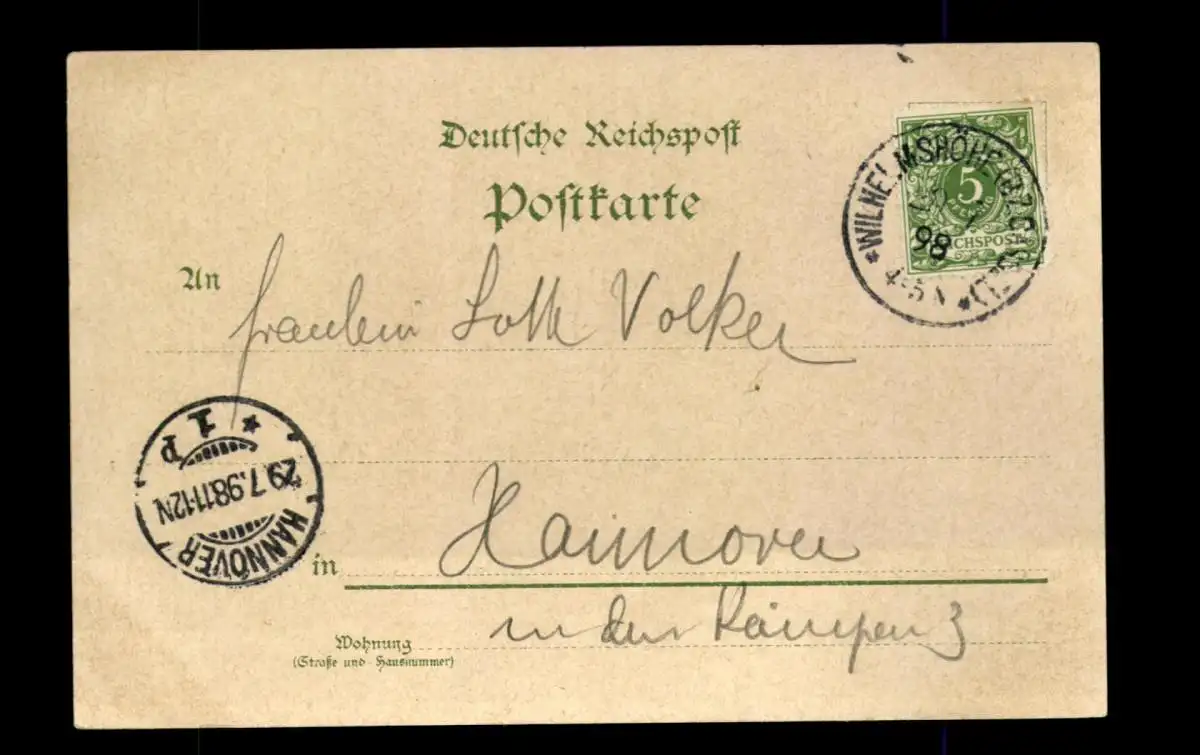 Deutsche Reichspost
Postkarte
An
Fräulein Lotte Volker
in Hannover
Wohnung
(Straße und Hausnummer)
in den Kämpen 3
5
REICHSPOST
*WILHELMSHÖHE (BZ CASSEL)*
98
4-5N
* 1 p
29.7.98.11-12N
HANNOVER